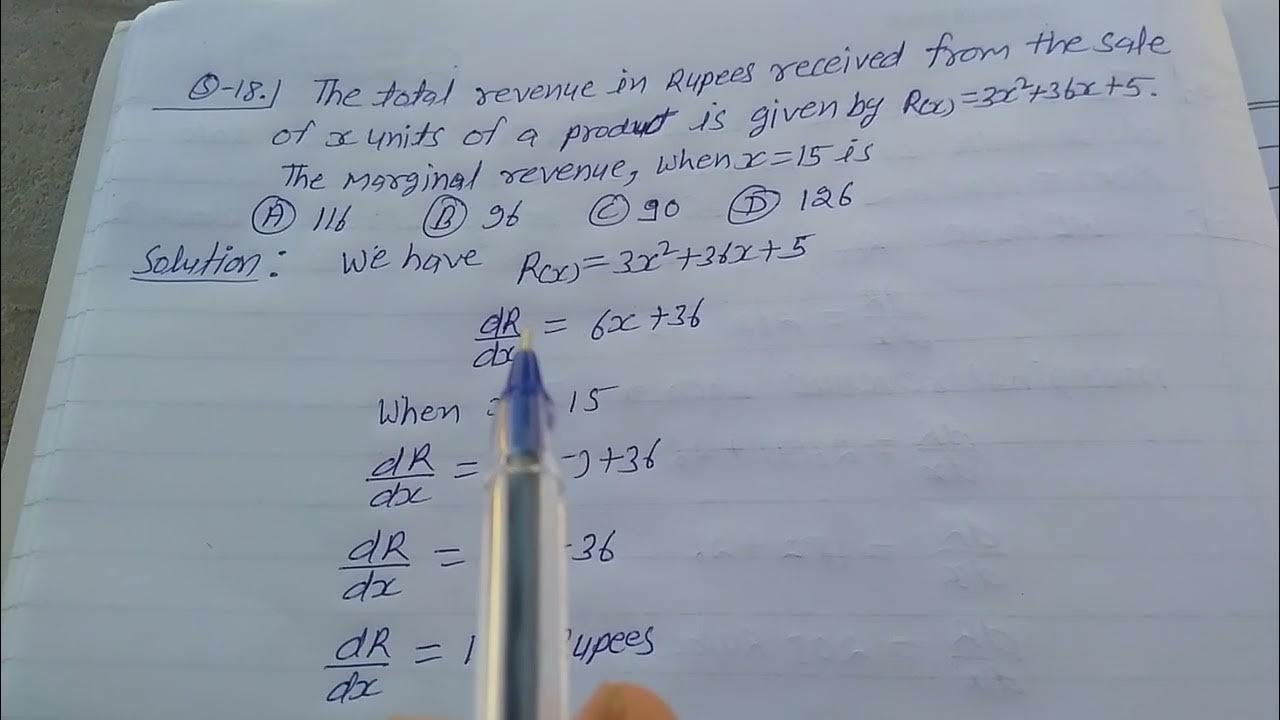 Q-18.) The total revenue in Rupees received from the sale
of x units of a product is given by R(x)=3x²+36x+5.
The marginal revenue, when x=15 is
(A) 116 (B) 96 (C) 90 (D) 126
Solution: We have R(x)=3x²+36x+5
dR/dx = 6x+36
When 15
dR/dx = )+36
dR/dx = 36
dR/dx = 1 upees